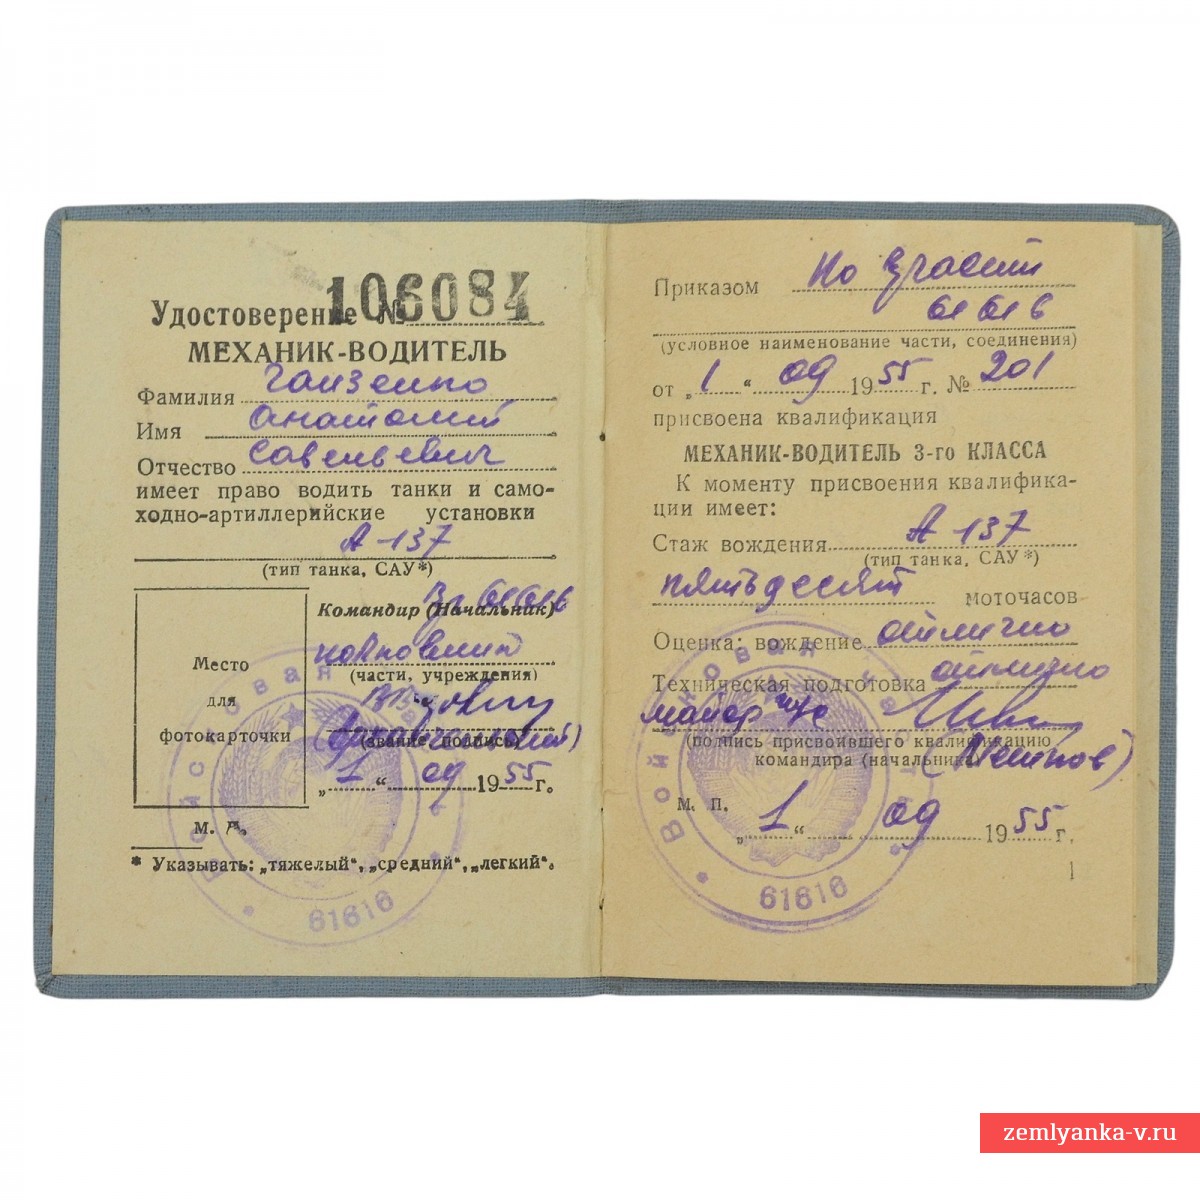 Удостоверение № 106084
МЕХАНИК-ВОДИТЕЛЬ
Фамилия
Имя Анатолий
Отчество Савельевич
имеет право водить танки и само-
ходно-артиллерийские установки
А-137
(тип танка, САУ*)
Командир (Начальник) 61616
полковник
(части, учреждения)
(звание, подпись)
„1“ 09 1955 г.
Место
для
фотокарточки
М. П.
* Указывать: „тяжелый“, „средний“, „легкий“.
Войсковая часть
* 61616 *
Приказом по
61616
(условное наименование части, соединения)
от „1“ 09 1955 г. № 201
присвоена квалификация
МЕХАНИК-ВОДИТЕЛЬ 3-го КЛАССА
К моменту присвоения квалифика-
ции имеет:
Стаж вождения А-137
(тип танка, САУ*)
пятьдесят моточасов
Оценка: вождение отлично
Техническая подготовка отлично
майор
(подпись присвоившего квалификацию
командира (начальника)
м. п.
„1“ 09 1955 г.
1
Войсковая часть
* 61616 *
zemlyanka-v.ru